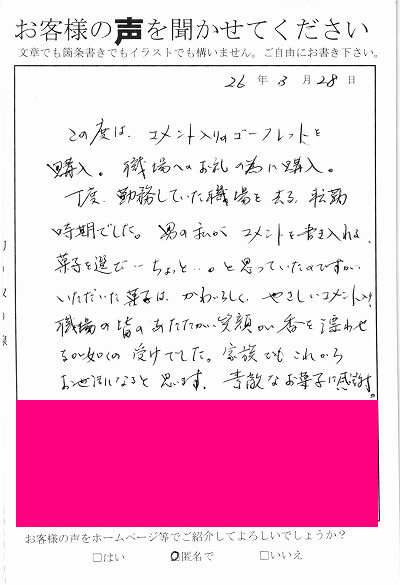 お客様の声を聞かせてください
文章でも箇条書きでもイラストでも構いません。ご自由にお書き下さい。
26年3月28日
この度は、コメント入りのゴーフレットを
購入。職場へのお礼の為に購入。
丁度、勤務していた職場を去る、転勤
時期でした。男の私がコメントを書き入れる、
菓子を選び…ちょっと…。と思っていたのですが
いただいた菓子は、かわいらしく、やさしいコメント入り
職場の皆のあたたかい笑顔が香を漂わせ
るが如くの受けでした。家族でもこれから
お世話になると思います。素敵なお菓子に感謝。
お客様の声をホームページ等でご紹介してよろしいでしょうか？
□はい □匿名で □いいえ